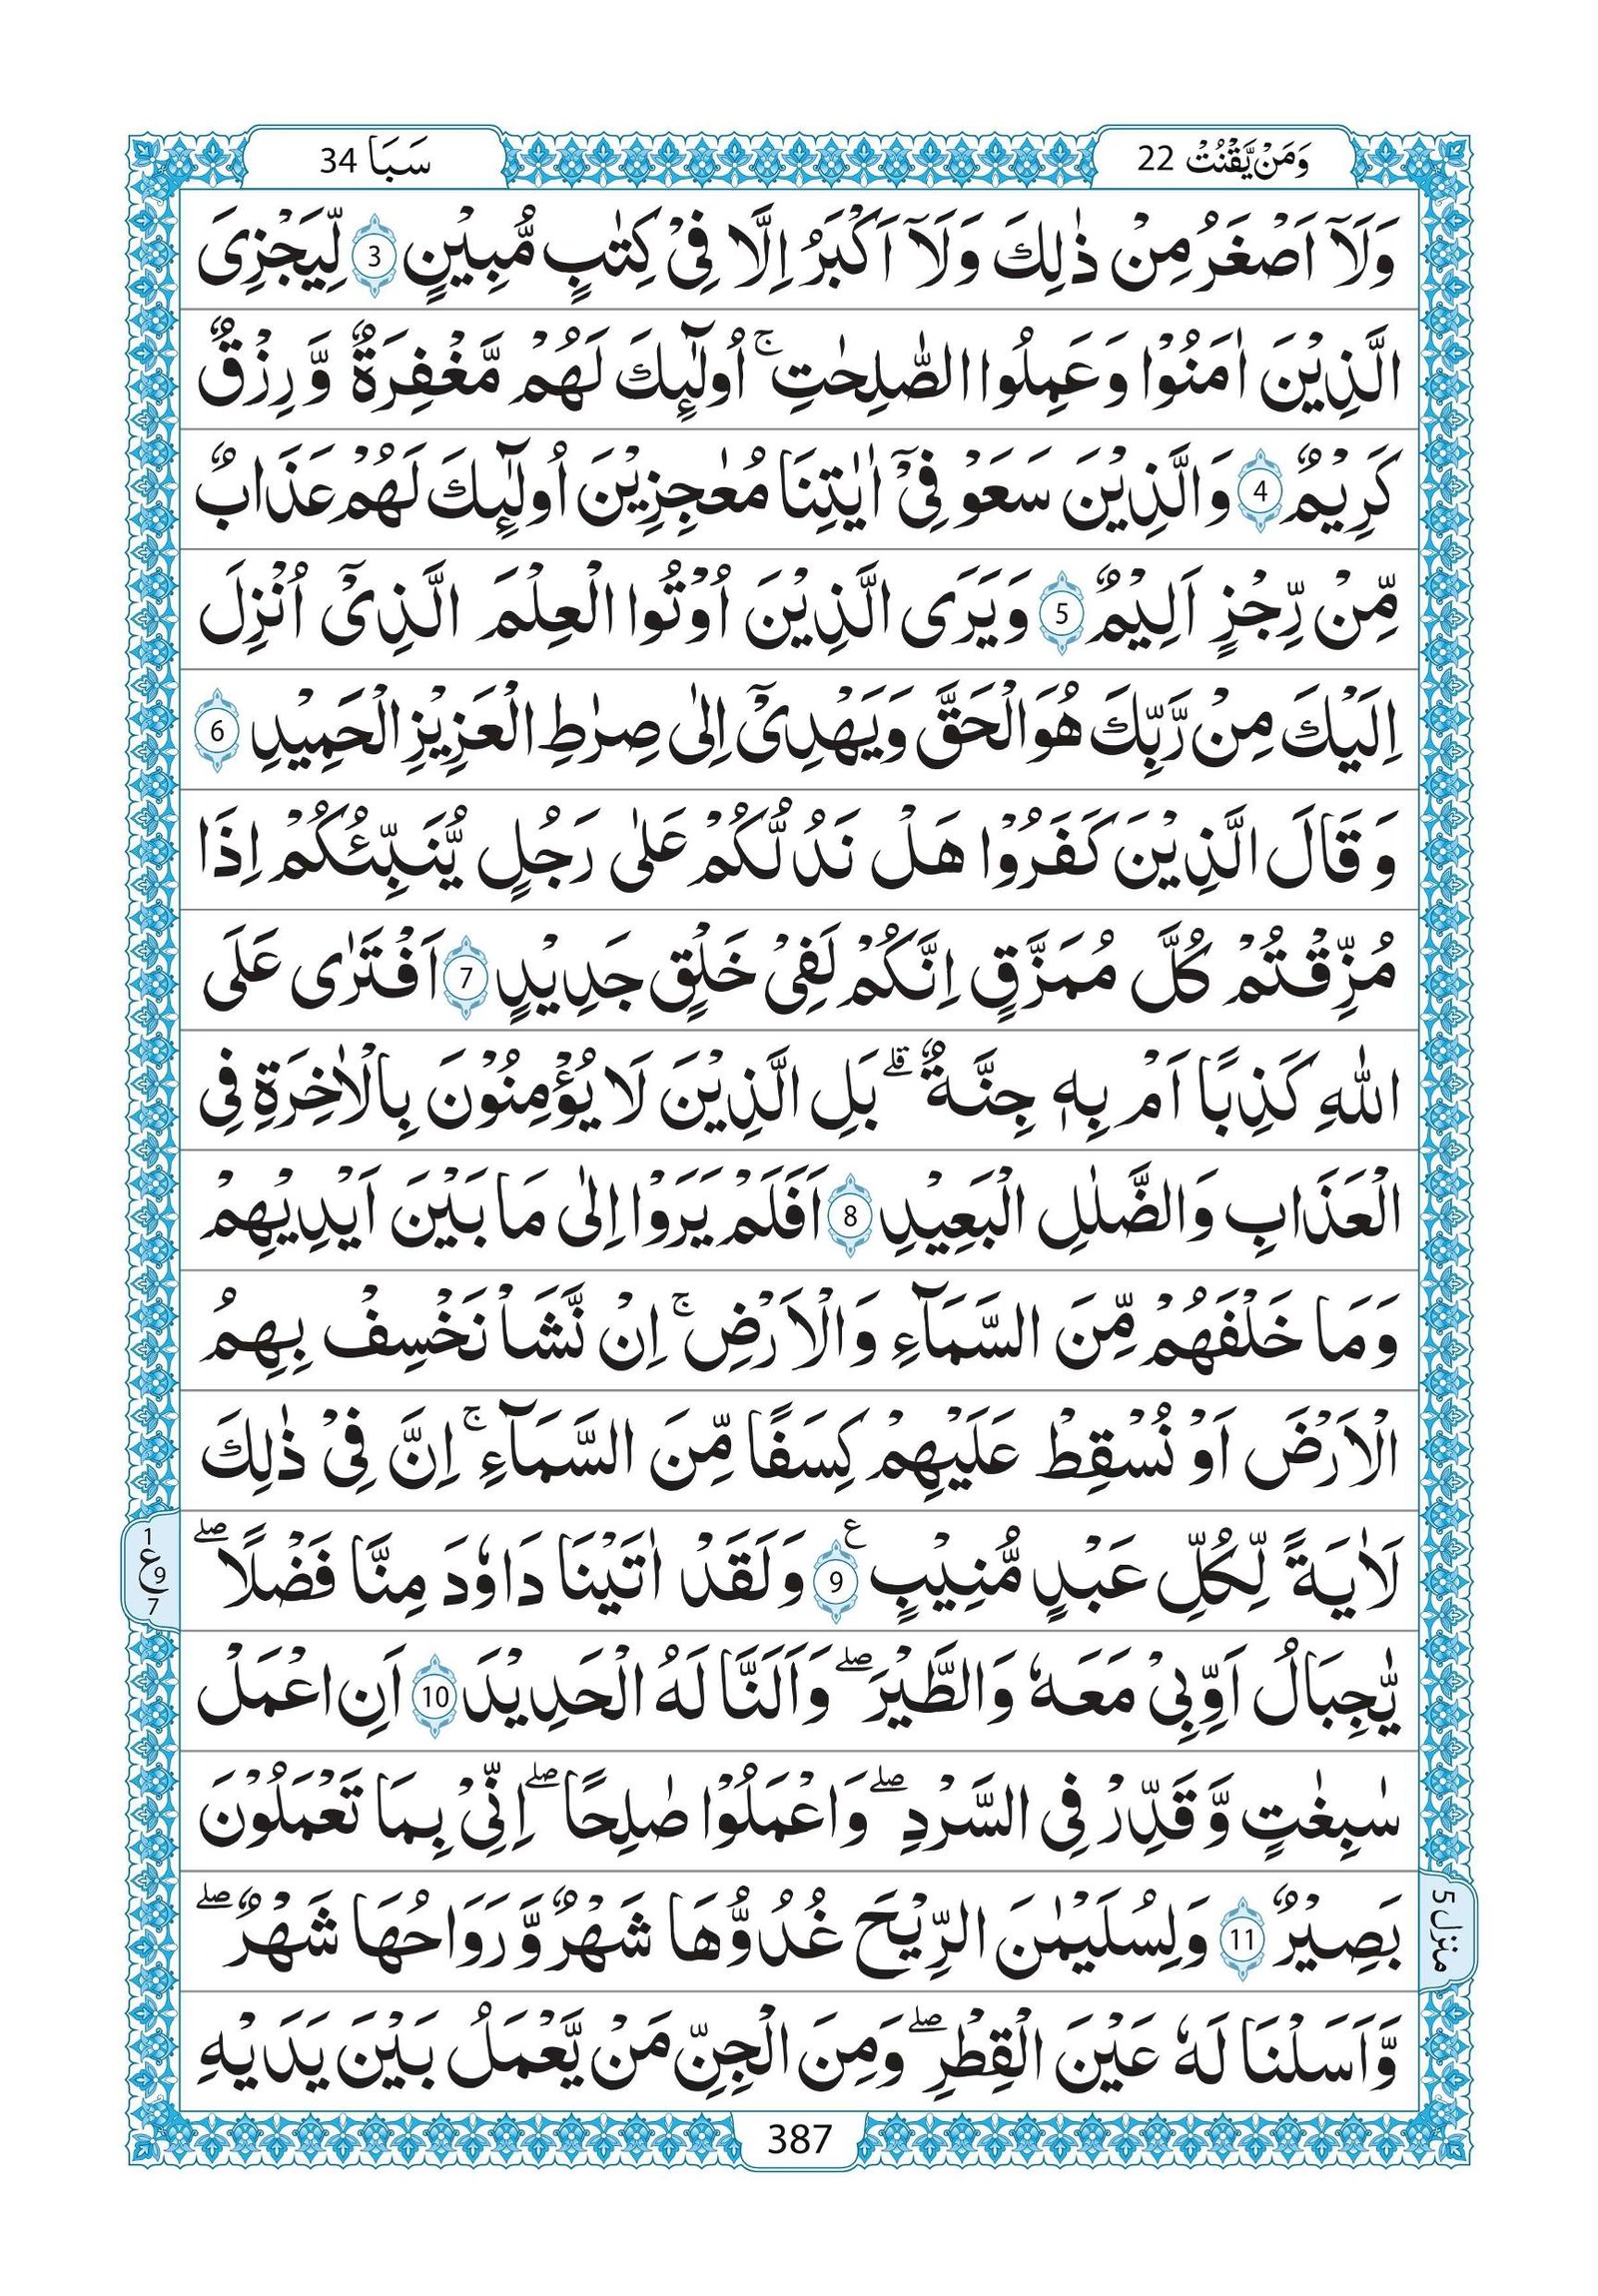 وَمَنْ يَّقْنُتْ 22
سَبَا 34
وَلَآ اَصْغَرُ مِنْ ذٰلِكَ وَلَآ اَكْبَرُ اِلَّا فِىْ كِتٰبٍ مُّبِيْنٍ 3 لِّيَجْزِىَ
الَّذِيْنَ اٰمَنُوْا وَعَمِلُوا الصّٰلِحٰتِ ۚ اُولٰٓئِكَ لَهُمْ مَّغْفِرَةٌ وَّرِزْقٌ
كَرِيْمٌ 4 وَالَّذِيْنَ سَعَوْ فِىْٓ اٰيٰتِنَا مُعٰجِزِيْنَ اُولٰٓئِكَ لَهُمْ عَذَابٌ
مِّنْ رِّجْزٍ اَلِيْمٌ 5 وَيَرَى الَّذِيْنَ اُوْتُوا الْعِلْمَ الَّذِىْٓ اُنْزِلَ
اِلَيْكَ مِنْ رَّبِّكَ هُوَ الْحَقَّ وَيَهْدِىْٓ اِلٰى صِرٰطِ الْعَزِيْزِ الْحَمِيْدِ 6
وَقَالَ الَّذِيْنَ كَفَرُوْا هَلْ نَدُلُّكُمْ عَلٰى رَجُلٍ يُّنَبِّئُكُمْ اِذَا
مُزِّقْتُمْ كُلَّ مُمَزَّقٍ اِنَّكُمْ لَفِىْ خَلْقٍ جَدِيْدٍ 7 اَفْتَرٰى عَلَى
اللّٰهِ كَذِبًا اَمْ بِهٖ جِنَّةٌ ۗ بَلِ الَّذِيْنَ لَا يُؤْمِنُوْنَ بِالْاٰخِرَةِ فِى
الْعَذَابِ وَالضَّلٰلِ الْبَعِيْدِ 8 اَفَلَمْ يَرَوْا اِلٰى مَا بَيْنَ اَيْدِيْهِمْ
وَمَا خَلْفَهُمْ مِّنَ السَّمَآءِ وَالْاَرْضِ ۚ اِنْ نَّشَاْ نَخْسِفْ بِهِمُ
الْاَرْضَ اَوْ نُسْقِطْ عَلَيْهِمْ كِسَفًا مِّنَ السَّمَآءِ ۚ اِنَّ فِىْ ذٰلِكَ
لَاٰيَةً لِّكُلِّ عَبْدٍ مُّنِيْبٍ ع 9 وَلَقَدْ اٰتَيْنَا دَاوٗدَ مِنَّا فَضْلًا ۖ
1 ع 9 7
يٰجِبَالُ اَوِّبِىْ مَعَهٗ وَالطَّيْرَ ۖ وَاَلَنَّا لَهُ الْحَدِيْدَ 10 اَنِ اعْمَلْ
سٰبِغٰتٍ وَّقَدِّرْ فِى السَّرْدِ ۖ وَاعْمَلُوْا صٰلِحًا ۖ اِنِّىْ بِمَا تَعْمَلُوْنَ
بَصِيْرٌ 11 وَلِسُلَيْمٰنَ الرِّيْحَ غُدُوُّهَا شَهْرٌ وَّرَوَاحُهَا شَهْرٌ ۖ
منزل 5
وَّاَسَلْنَا لَهٗ عَيْنَ الْقِطْرِ ۖ وَمِنَ الْجِنِّ مَنْ يَّعْمَلُ بَيْنَ يَدَيْهِ
387